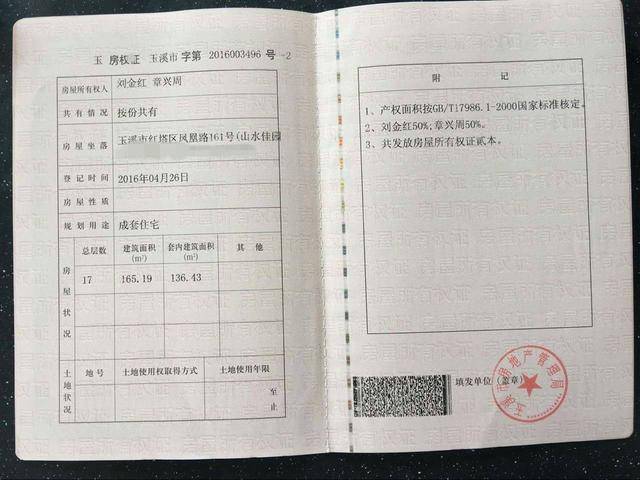 玉 房权证 玉溪市 字第 2016003496 号 -2
房屋所有权人 刘金红 章兴周
共有情况 按份共有
房屋坐落 玉溪市红塔区凤凰路161号(山水佳园
登记时间 2016年04月26日
房屋性质
规划用途 成套住宅
房屋状况 总层数 建筑面积(m²) 套内建筑面积(m²) 其他
17 165.19 136.43
土地状况 地号 土地使用权取得方式 土地使用年限
至
止
附 记
1、产权面积按GB/T17986.1-2000国家标准核定。
2、刘金红50%;章兴周50%。
3、共发放房屋所有权证贰本。
填发单位(盖章)
玉溪市房地产管理局